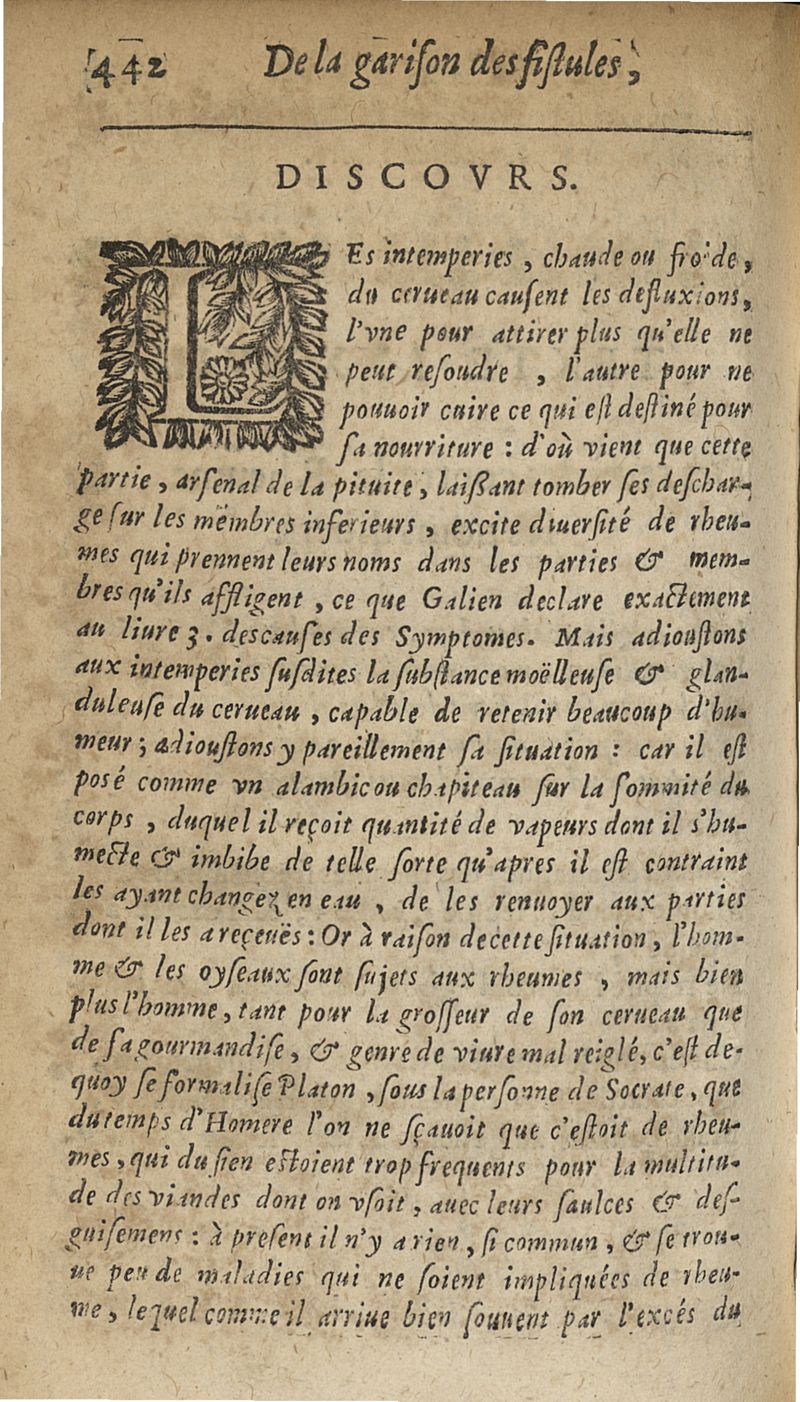 442 De la garison des fistules,
DISCOVRS.
LEs intemperies, chaude ou froide,
du cerueau causent les defluxions,
l'vne pour attirer plus qu'elle ne
peut resoudre, l'autre pour ne
pouuoir cuire ce qui est destiné pour
sa nourriture : d'où vient que cette
partie, arsenal de la pituite, laißant tomber ses deschar-
ge sur les membres inferieurs, excite diuersité de rheu-
mes qui prennent leurs noms dans les parties & mem-
bres qu'ils affligent, ce que Galien declare exactement
au liure 3. des causes des Symptomes. Mais adioustons
aux intemperies susdites la substance moëlleuse & glan-
duleuse du cerueau, capable de retenir beaucoup d'hu-
meur; adioustons y pareillement sa situation : car il est
posé comme vn alambic ou chapiteau sur la sommité du
corps, duquel il reçoit quantité de vapeurs dont il s'hu-
mecte & imbibe de telle sorte qu'apres il est contraint
les ayant changez en eau, de les renuoyer aux parties
dont il les a reçeuës : Or à raison de cette situation, l'hom-
me & les oyseaux sont sujets aux rheumes, mais bien
plus l'homme, tant pour la grosseur de son cerueau que
de sa gourmandise, & genre de viure mal reiglé, c'est de-
quoy se formalise Platon, sous la personne de Socrate, que
du temps d'Homere l'on ne sçauoit que c'estoit de rheu-
mes, qui du sien estoient trop frequents pour la multitu-
de des viandes dont on vsoit, auec leurs saulces & des-
guisemens : à present il n'y a rien, si commun, & se trou-
ue peu de maladies qui ne soient impliquées de rheu-
me, lequel comme il arriue bien souuent par l'excés du